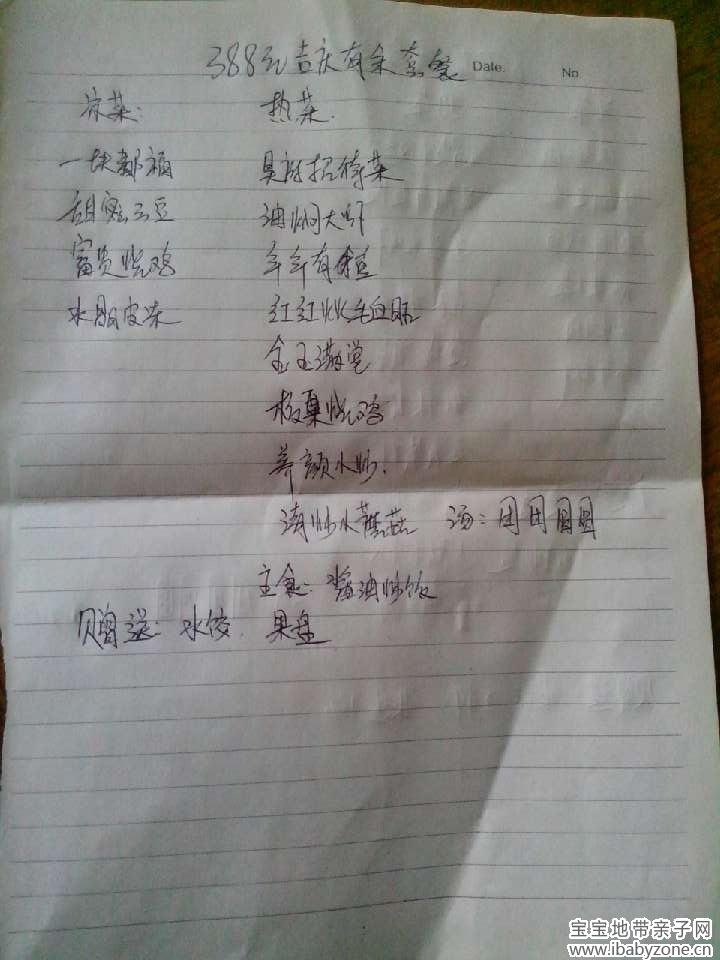 388元吉庆有余套餐 Date. No
凉菜: 热菜.
一块都福 招待菜
甜蜜云豆 油焖大虾
富贵烧鸡 年年有鱼
水晶皮冻 红红火火毛血旺
金玉满堂
烧鸡
养颜小炒.
清炒水蘑菇 汤: 团团圆圆
主食: 酱油炒饭
赠送: 水饺. 果盘
宝宝地带亲子网
www.ibabyzone.cn